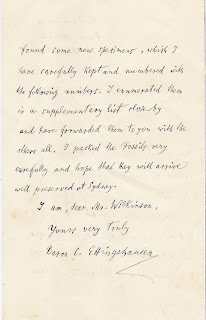 found some new specimens, which I
have carefully kept and numbered with
the following numbers. I enumerated them
in a supplementary list close by
and have forwarded them to you with the
others all. I packed the Fossils very
carefully and hope that they will arrive
well preserved at Sydney.
I am, dear Mr. Wilkinson,
Yours very truly
Baron C. Ettingshausen